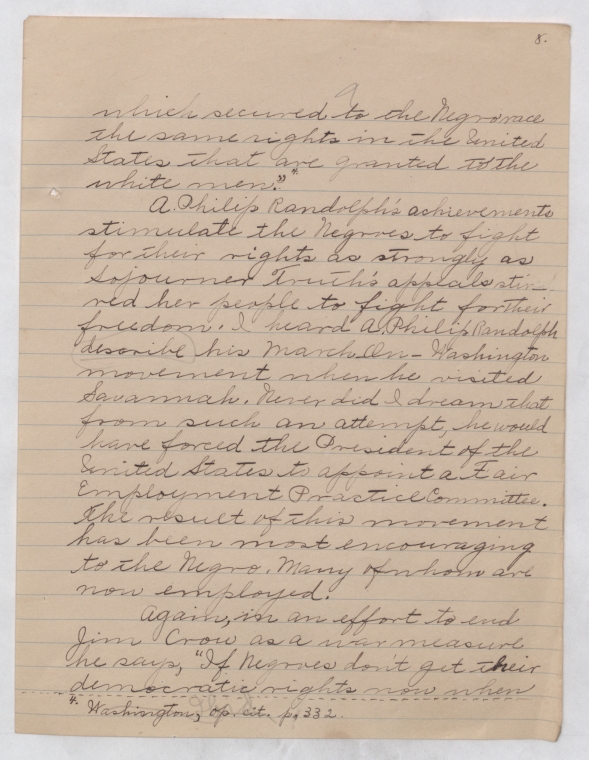 8.
which secured to the Negro race
the same rights in the United
States that are granted to the
white men."4.
A. Philip Randolph's achievements
stimulate the Negroes to fight
for their rights as strongly as
Sojourner Truth's appeals stir-
red her people to fight for their
freedom. I heard A. Philip Randolph
describe his March-On-Washington
movement when he visited
Savannah. Never did I dream that
from such an attempt, he would
have forced the President of the
United States to appoint a Fair
Employment Practice Committee.
The result of this movement
has been most encouraging
to the Negro. Many of whom are
now employed.
Again, in an effort to end
Jim Crow as a war measure
he says, "If Negroes don't get their
democratic rights now when
4. Washington, op. cit. p. 332.